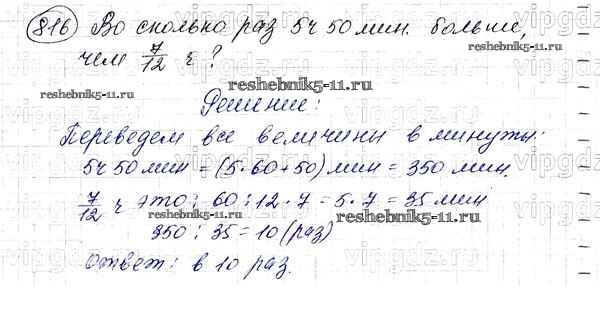 816 Во сколько раз 5ч 50мин. больше,
чем 7/12 ч?
reshebnik5-11.ru
Решение:
reshebnik5-11.ru
Переведем все величины в минуты:
5ч 50мин = (5·60+50) мин = 350 мин.
7/12 ч это: 60:12·7 = 5·7 = 35 мин
reshebnik5-11.ru
reshebnik5-11.ru
350 : 35 = 10 (раз)
Ответ: в 10 раз.
vipgdz.ru